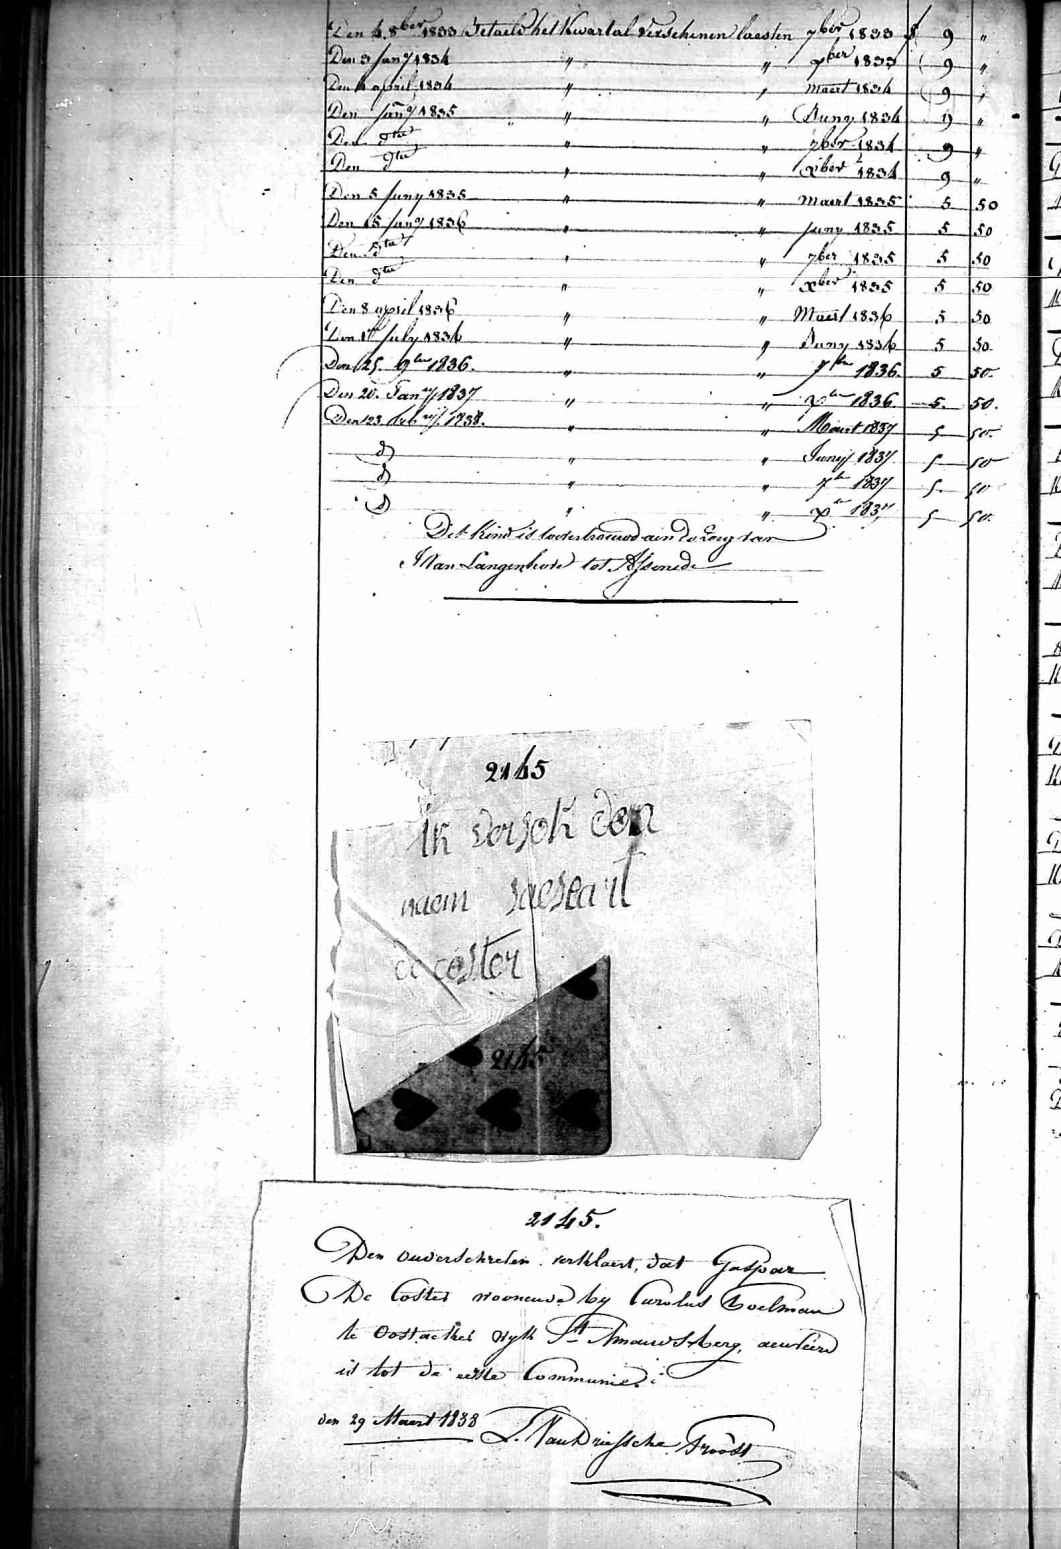 Den 4 8ber 1833 Betaeld het Kwartal verschenen laesten 7ber 1833 f 9 "
Den 3 Jany 1834 " " xber 1833 9 "
Den 4 april 1834 " " maert 1834 9 "
Den Jany 1835 " " Juny 1834 9 "
Den dto " " 7ber 1834 9 "
Den dto " " xber 1834 9 "
Den 5 Juny 1835 " " maert 1835 5 50
Den 15 Jany 1836 " " juny 1835 5 50
Den dto " " 7ber 1835 5 50
Den dto " " xber 1835 5 50
Den 8 april 1836 " " Maert 1836 5 50
Den July 1836 " " Juny 1836 5 50
Den 25. 9ber 1836. " " 7ber 1836. 5 50.
Den 20. Jany 1837 " " xber 1836 5. 50.
Den 23 1838. " " Maert 1837 5 50.
d " " Junij 1837 5 50
d " " 7ber 1837 5. 50
d " " xber 1837 5 50.
Det Kind is toevertrouwd aen de zorg van
J Van Langenhove tot Assenede
2145
ik versok den
naem
de coster
2145
2145.
Den onderschreten verklaert, dat Gaspar
De Coster woonende by Carolus Poelman
te Oostacker wyk St Amandsberg, aenveerd
is tot de eerste Communie.
den 29 Maert 1838 L. VanDriessche Proost